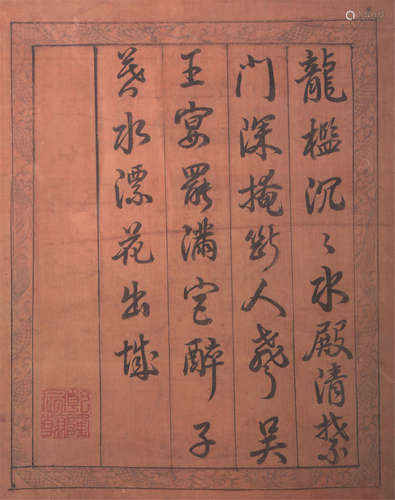 龍檻沉〻水殿清禁
門深掩斷人聲吳
王宴罷滿宮醉
暮水漂花出城